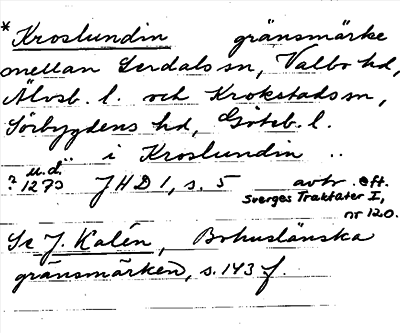 * Kroslundin gränsmärke
mellan Gerdals sn, Valbo hd,
Älvsb. l. och Krokstads sn,
Sörbygdens hd, Göteb. l.
u.d.
? 1273 " i Kroslundin ..
JHD 1, s. 5 avtr. eft.
Sverges Traktater I,
nr 120.
Se J. Kalén, Bohuslänska
gränsmärken, s. 143 f.